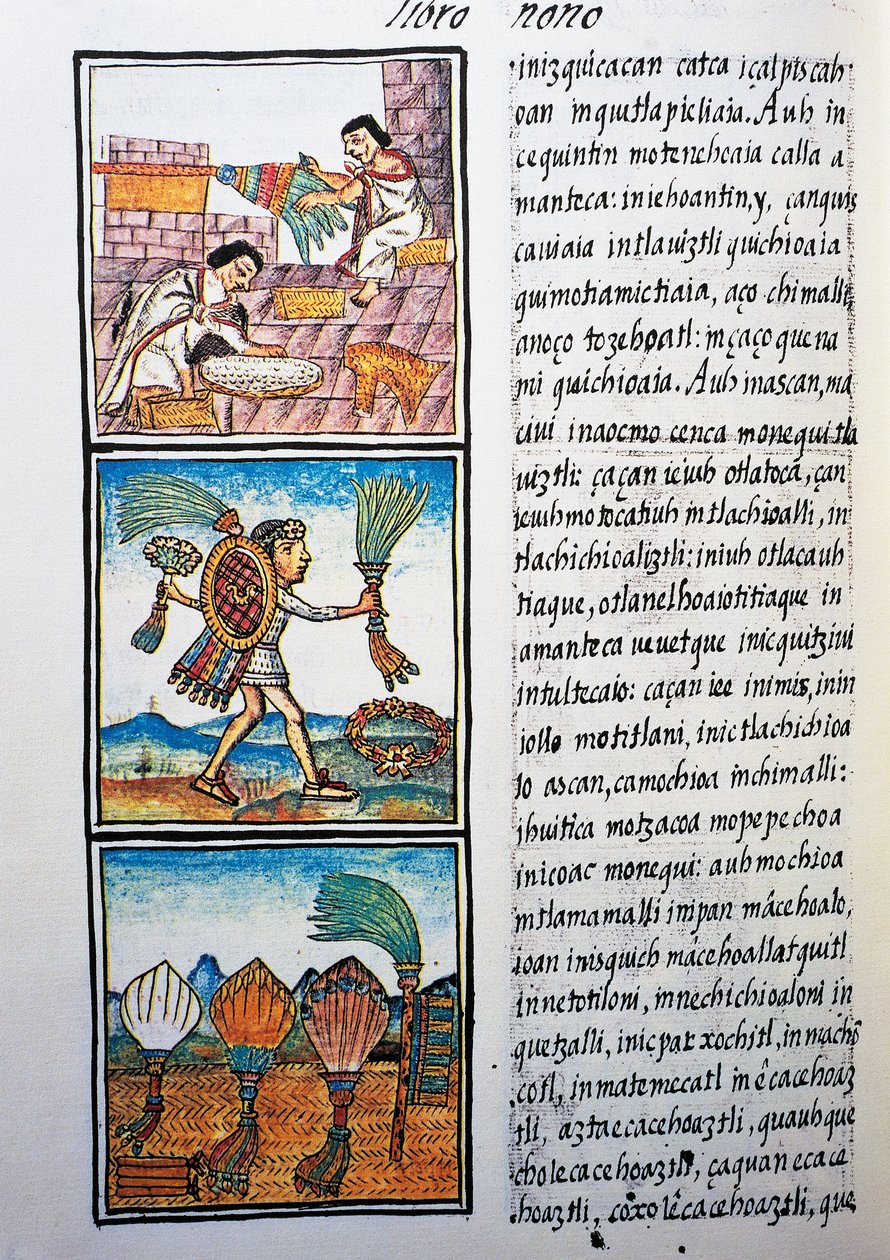 libro nono
inizquicacan catca içalpiscah
oan inquitlapicliaia. Auh in
cequintin motenehcaia calla a
manteca: iniehoantin, y, çanquis
caviaia intlaviztli quichioaia
quimotiamictiaia, aço chimalli,
anoço tozehoatl: inçaço quena
mi quichioaia. Auh inascan, ma
civi inaocmo cenca monequi tla
viztli: çaçan ieiuh otlatoca, çan
ieiuhmotocatiuh in tlachioalli, in
tlachichioaliztli: iniuh otlacauh
tiaque, otlanelhoaiotitiaque in
amanteca vevetque inicquitzivi
intultecaio: caçan iee inimis, inin
iollo motitlani, inic tlachichioa
lo ascan, camochioa inchimalli:
ihuitica motzacoa mopepechoa
inicoac monequi: auh mochioa
intlamamalli inipan mâcehoalo,
ioan inisquich mâcehoallatquitl
innetotiloni, innechichioaloni in
quetzalli, inicpac xochitl, in machõ
cotl, in matemecatl in êcacehoaz
tli, aztaecacehoaztli, quauhque
cholecacehoaztli, çaquanecace
hoaztli, coxolêcacehoaztli, que